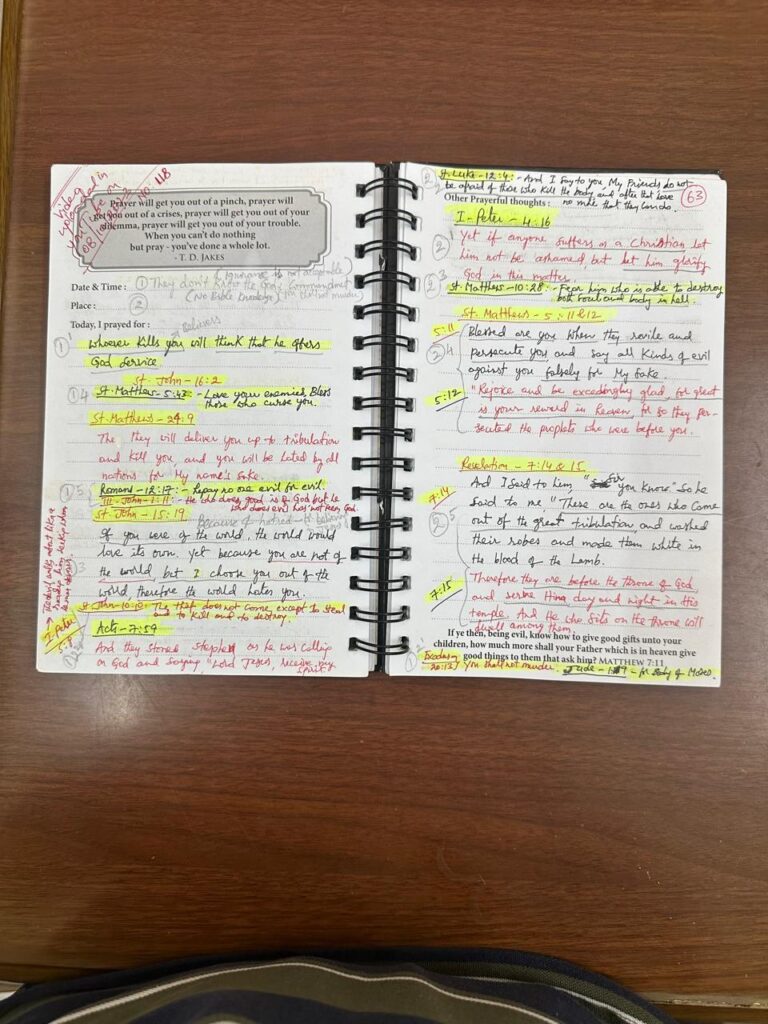 Video
uploaded in
you
on
08
118
Prayer will get you out of a pinch, prayer will
get you out of a crises, prayer will get you out of your
dilemma, prayer will get you out of your trouble.
When you can't do nothing
but pray - you've done a whole lot.
- T. D. JAKES
(Ignorance is not acceptable)
Date & Time : ① They don't know the God's Commandment
Place : ② (No Bible knowledge) you shall not murder
Today, I prayed for :
Believers
① whoever kills you will think that he offers
God service.
St. John - 16:2
①4 St. Matthew - 5:43 :- Love your enemies, Bless
those who curse you.
St. Matthews - 24:9
The they will deliver you up to tribulation
and kill you and you will be hated by all
nations for My name's sake.
①5 Romans - 12:17 :- Repay no one evil for evil.
III - John - 1:11 :- He who does good is of God but he
who does evil has not seen God.
St. John - 15:19
Because of hatred
If you were of the world, the world would
love its own. Yet because you are not of
the world, but I choose you out of the
world, therefore the world hates you.
St. John - 10:10 The thief does not come, except to steal
and to kill and to destroy.
Acts - 7:59
And they stoned Stephen as he was calling
on God and saying "Lord Jesus, receive my
spirit."
The devil walks about like a
I Peter
5:8
St. Luke - 12:4 :- And I say to you, My Friends do not
be afraid of those who kill the body and after that have
no more that they can do.
63
Other Prayerful thoughts :
I - Peter - 4:16
② Yet if anyone suffers as a Christian let
him not be ashamed, but let him glorify
God in this matter.
②3 St. Matthew - 10:28 :- Fear him who is able to destroy
both soul and body in hell.
St. Matthews - 5 : 11 & 12
5:11 Blessed are you when they revile and
②4 persecute you and say all kinds of evil
against you falsely for My sake.
5:12 "Rejoice and be exceedingly glad, for great
is your reward in Heaven, for so they per-
secuted the prophets who were before you.
Revelation - 7:14 & 15
7:14 And I said to him, "Sir you know." So he
said to me, "These are the ones who come
②5 out of the great tribulation, and washed
their robes and made them white in
the blood of the Lamb.
7:15 Therefore they are before the throne of God,
and serve Him day and night in His
temple. And He who sits on the throne will
dwell among them.
If ye then, being evil, know how to give good gifts unto your
children, how much more shall your Father which is in heaven give
good things to them that ask him? MATTHEW 7:11.
① Exodus 20:13 you shall not murder. Jude - 1:9 - for Body of Moses